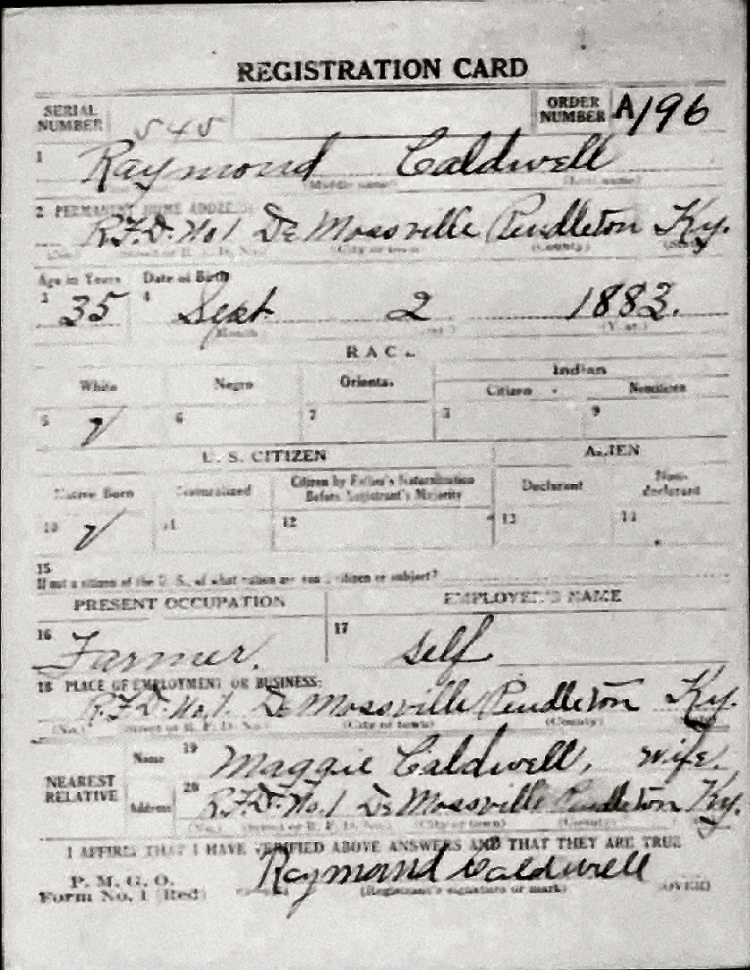 REGISTRATION CARD
SERIAL NUMBER 545 ORDER NUMBER A196
1 Raymond Caldwell
(Middle name) (Last name)
2 PERMANENT HOME ADDRESS:
R.F.D. No. 1 De Mossville Pendleton Ky.
(No.) (Street or R. F. D. No.) (City or town) (County) (State)
Age in Years Date of Birth
3 35 4 Sept. 2 1883.
(Month) (Year)
RACE
White Negro Oriental Indian
Citizen Noncitizen
5 ✓ 6 7 8 9
U. S. CITIZEN ALIEN
Native Born Naturalized Citizen by Father's Naturalization Before Registrant's Majority Declarant Non-declarant
10 ✓ 11 12 13 14
15
If not a citizen of the U. S., of what nation are you a citizen or subject?
PRESENT OCCUPATION EMPLOYER'S NAME
16 Farmer. 17 Self
18 PLACE OF EMPLOYMENT OR BUSINESS:
R.F.D. No. 1. De Mossville Pendleton Ky.
(No.) (Street or R. F. D. No.) (City or town) (County)
NEAREST RELATIVE Name 19 Maggie Caldwell, wife.
Address 20 R.F.D. No. 1 De Mossville Pendleton Ky.
(No.) (Street or R. F. D. No.) (City or town) (County)
I AFFIRM THAT I HAVE VERIFIED ABOVE ANSWERS AND THAT THEY ARE TRUE
P. M. G. O.
Form No. 1 (Red) Raymond Caldwell
(Registrant's signature or mark) (OVER)